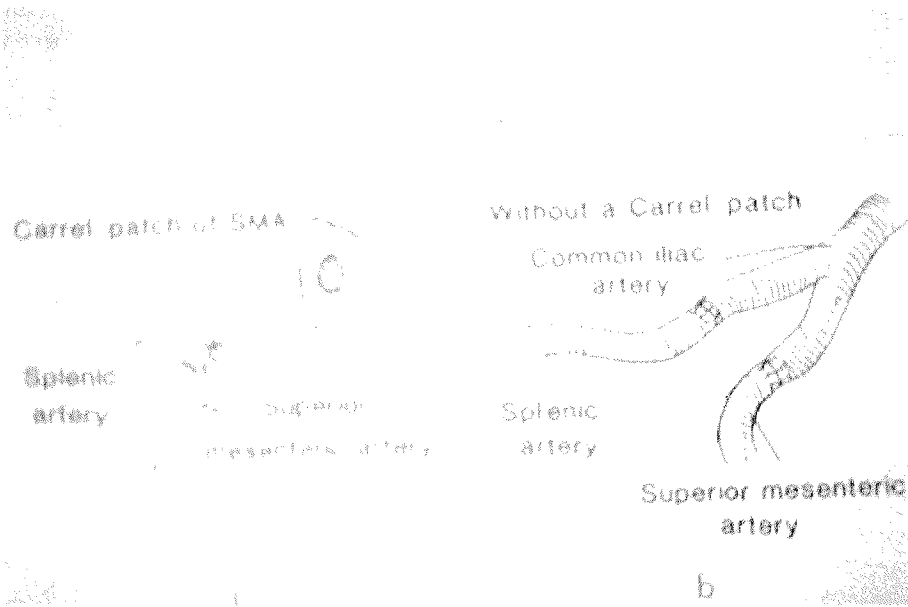 Carrel patch of SMA
Splenic
artery
Superior
mesenteric artery
Without a Carrel patch
Common iliac
artery
Splenic
artery
Superior mesenteric
artery
b